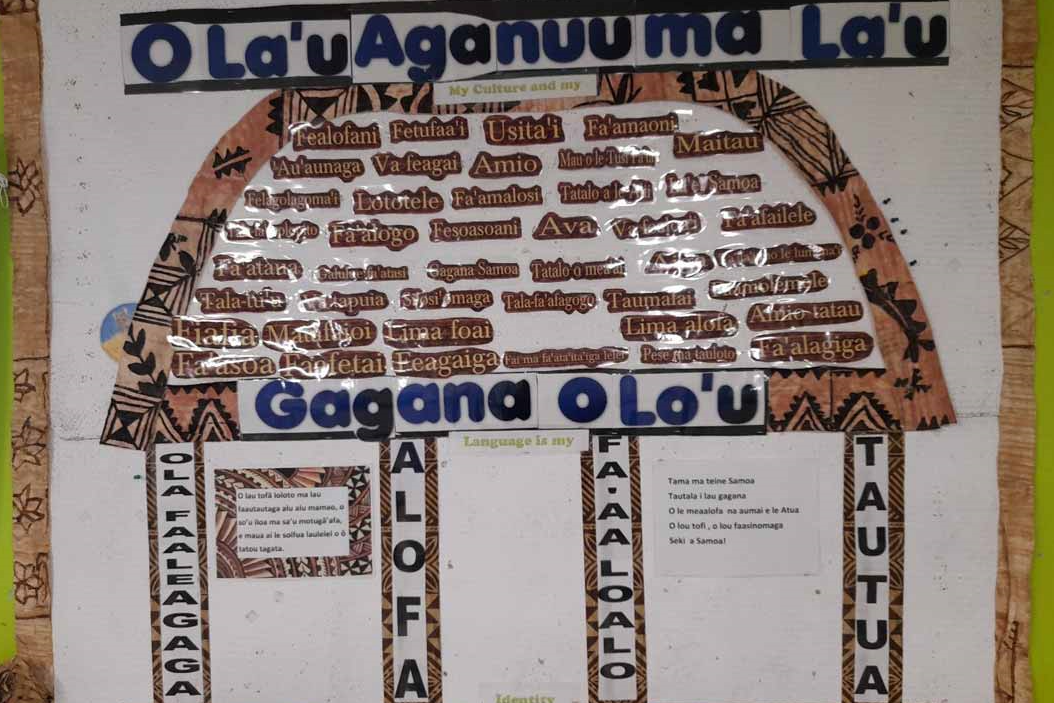 O La'u Aganuu ma La'u
My Culture and my
Fealofani Fetufaa'i Usita'i Fa'amaoni Maitau
'Au'aunaga Va feagai Amio Mau o le Tusi
Felagolagoma'i Lototele Fa'amalosi Tatalo a le Samoa
Fa'alogo Fesoasoani Ava Fa'afailele
Fa'atau Gagana Samoa Tatalo o
Tala-fa'afagogo Taumafai
Fiafia Lima foai Lima alofa Amio tatau
Fa'asoa Faafetai Feagaiga Pese ma tauloto Fa'alagiga
Gagana O Lo'u
Language is my
OLA FAALEAGAGA
ALOFA
FA'AALOALO
TAUTUA
O lau tofā loloto ma lau
faautautaga alu alu mamao, o
so'u iloa ma sa'u motugā'afa,
e maua ai le soifua laulelei o ō
tatou tagata.
Tama ma teine Samoa
Tautala i lau gagana
O le meaalofa na aumai e le Atua
O lou tofi , o lou faasinomaga
Seki a Samoa!
Identity